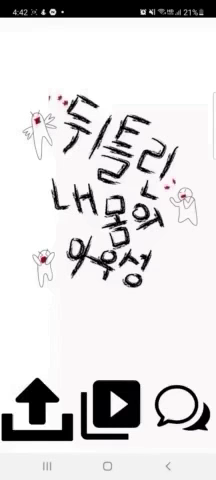 4:42
21%
뒤틀린
내 몸의
와우성